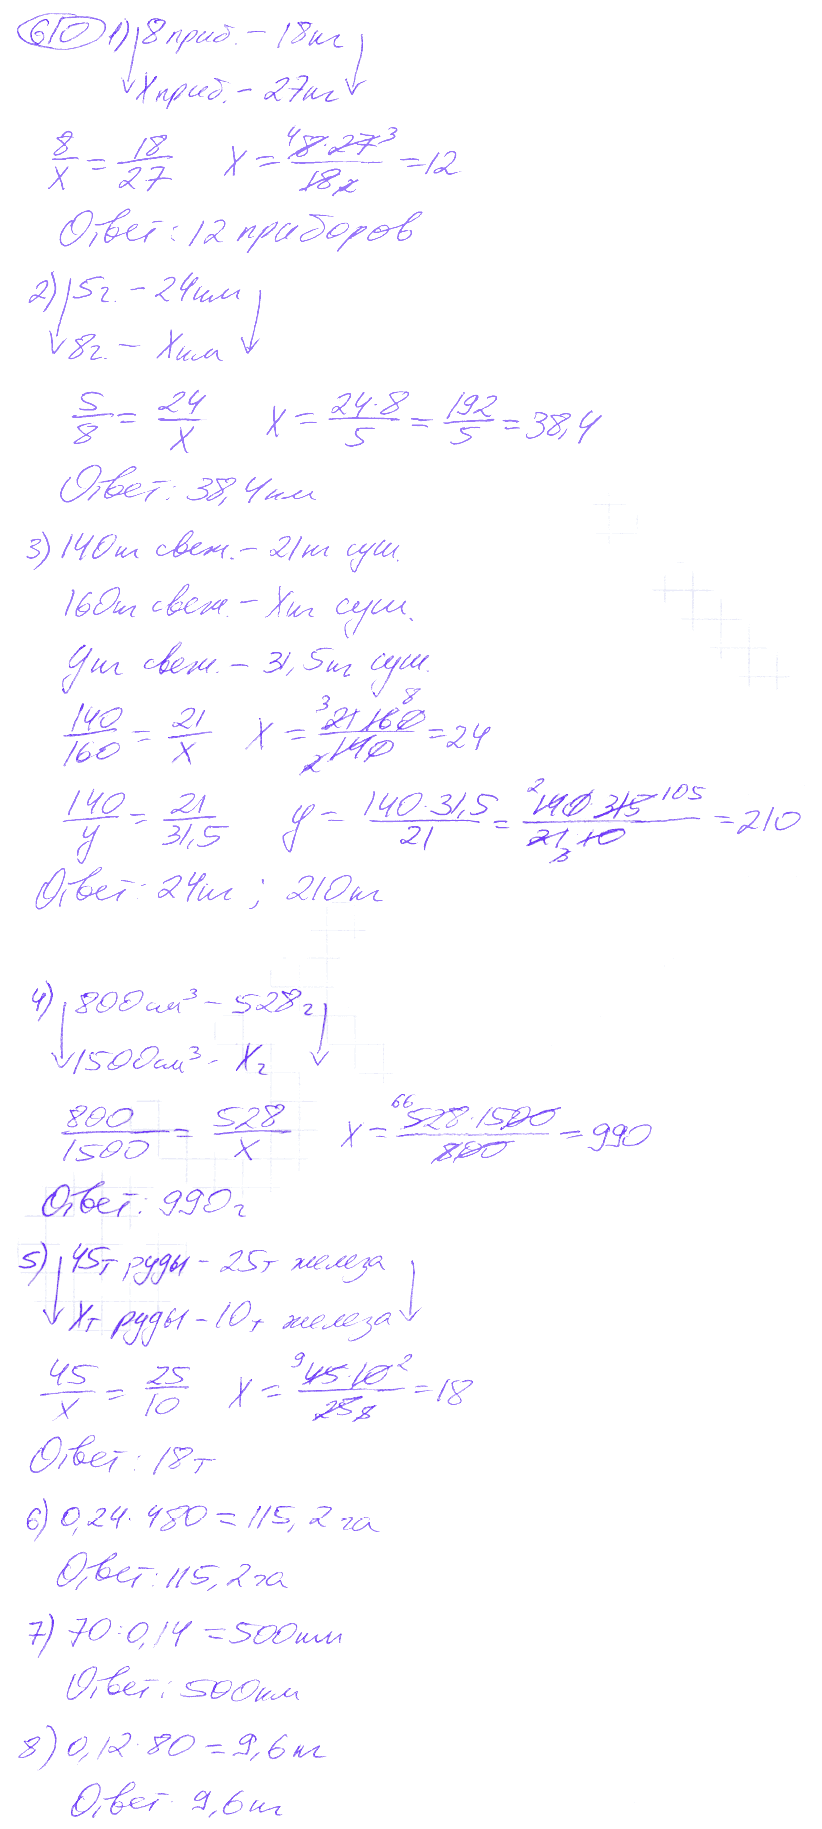 610 1) 8 приб. – 18 кг
X приб. – 27 кг
8/X = 18/27 X = 8·27/18 = 12
Ответ: 12 приборов
2) 5 г. – 24 км
8 г. – X км
5/8 = 24/X X = 24·8/5 = 192/5 = 38,4
Ответ: 38,4 км
3) 140 кг свеж. – 21 кг суш.
160 кг свеж. – X кг суш.
y кг свеж. – 31,5 кг суш.
140/160 = 21/X X = 21 160/140 = 24
140/y = 21/31,5 y = 140·31,5/21 = 140·315/21·10 = 210
Ответ: 24 кг ; 210 кг
4) 800 см³ – 528 г
1500 см³ – X г
800/1500 = 528/X X = 528·1500/800 = 990
Ответ: 990 г
5) 45 т руды – 25 т железа
X т руды – 10 т железа
45/X = 25/10 X = 45·10/25 = 18
Ответ: 18 т
6) 0,24·480 = 115,2 га
Ответ: 115,2 га
7) 70:0,14 = 500 км
Ответ: 500 км
8) 0,12·80 = 9,6 кг
Ответ: 9,6 кг